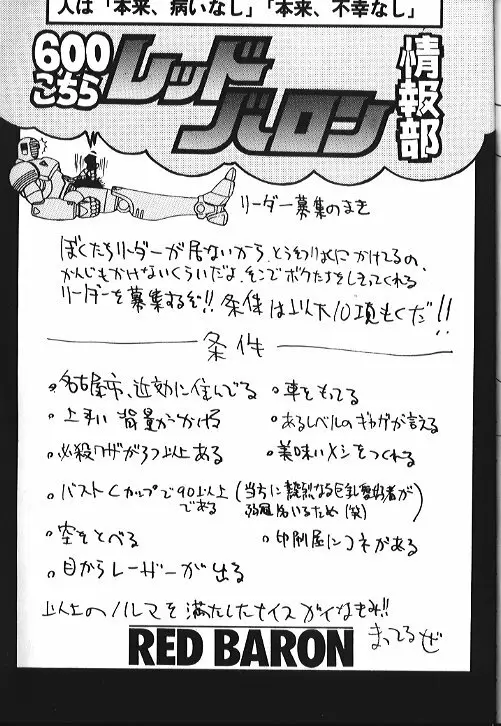 人は「本来、病いなし」「本来、不幸なし」
600こちら
レッドバロン
情報部
リーダー募集のまき
ぼくたちリーダーが居ないから、
かんじもかけないくらいだよ、そこでボクたちをしてくれる
リーダーを募集するぞ!! 条件は以下10項もくだ!!
条件
・名古屋市、近効に住んでる
・車をもってる
・上手い背景がかける
・あるレベルのギャグが言える
・必殺ワザが3つ以上ある
・美味いメシをつくれる
・バストCカップで90以上である
(当方に熱烈なる巨乳愛好者が
居るため(笑))
・空をとべる
・印刷屋にコネがある
・目からレーザーが出る
以上のノルマを満たしたナイスガイなきみ!!
まってるぜ
RED BARON